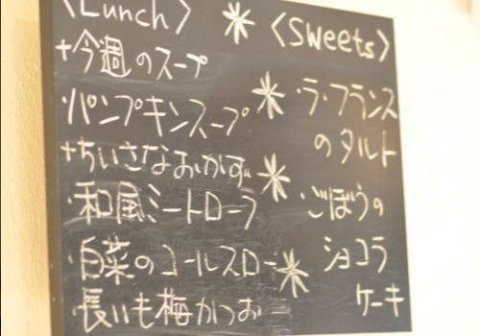 〈Lunch〉
+今週のスープ
・パンプキンスープ
+ちいさなおかず
・和風ミートローフ
・白菜のコールスロー
長いも梅かつお
〈Sweets〉
・ラ・フランス
のタルト
・ごぼうの
ショコラ
ケーキ